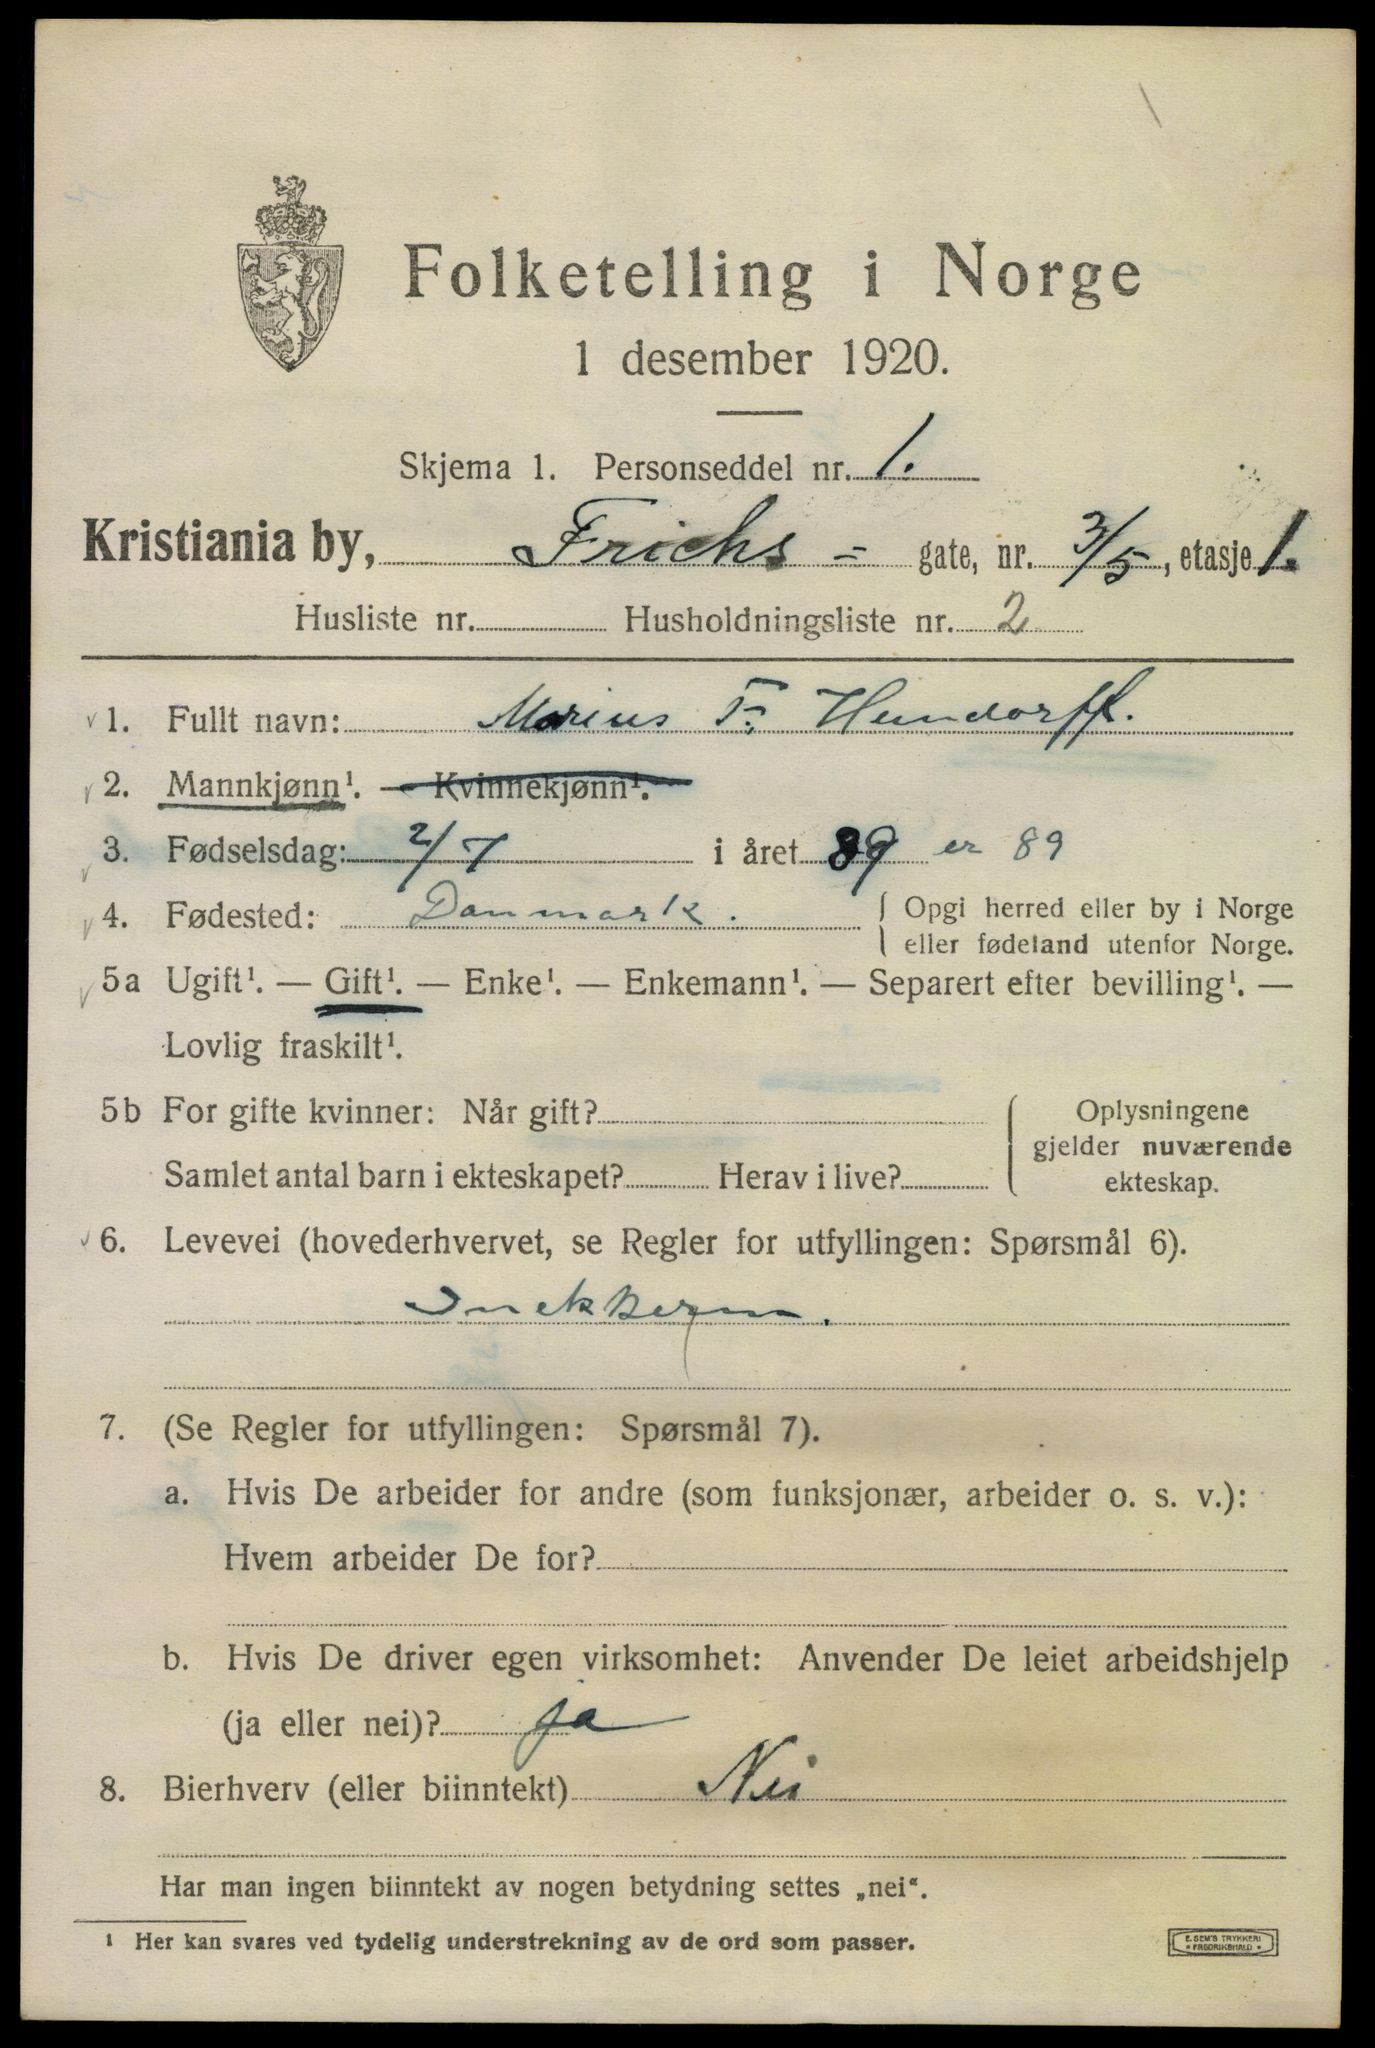 Folketelling i Norge
1 desember 1920.
Skjema 1. Personseddel nr. 1.
Kristiania by, Frichs = gate, nr. 3/5, etasje 1.
Husliste nr. Husholdningsliste nr. 2
1. Fullt navn: Marius F.
2. Mannkjønn¹. — Kvinnekjønn¹.
3. Fødselsdag: 2/7 i året 89 er 89
4. Fødested: Danmark. Opgi herred eller by i Norge
eller fødeland utenfor Norge.
5a Ugift¹. — Gift¹. — Enke¹. — Enkemann¹. — Separert efter bevilling¹. —
Lovlig fraskilt¹.
5b For gifte kvinner: Når gift? Oplysningene
gjelder nuværende
Samlet antal barn i ekteskapet? Herav i live? ekteskap.
6. Levevei (hovederhvervet, se Regler for utfyllingen: Spørsmål 6).
7. (Se Regler for utfyllingen: Spørsmål 7).
a. Hvis De arbeider for andre (som funksjonær, arbeider o. s. v.):
Hvem arbeider De for?
b. Hvis De driver egen virksomhet: Anvender De leiet arbeidshjelp
(ja eller nei)? ja
8. Bierhverv (eller biinntekt) Nei
Har man ingen biinntekt av nogen betydning settes „nei“.
¹ Her kan svares ved tydelig understrekning av de ord som passer.
E. SEM'S TRYKKERI
* FREDRIKSHALD *